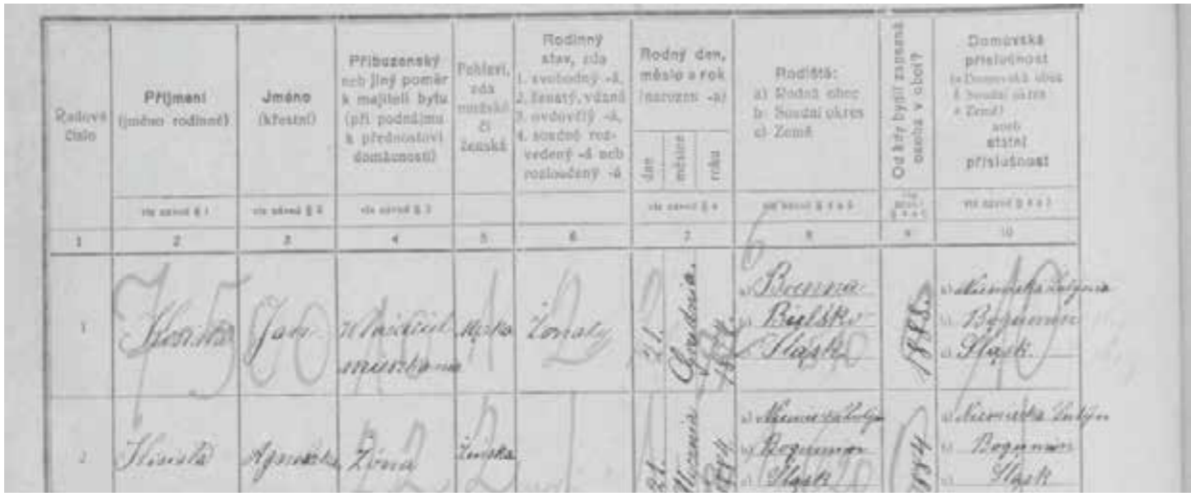 Řadové číslo
Příjmení (jméno rodinné)
Jméno (křestní)
Příbuzenský neb jiný poměr k majiteli bytu (při podnájmu k přednostovi domácnosti)
Pohlaví, zda mužské či ženské
Rodinný stav, zda 1. svobodný -á, 2. ženatý, vdaná 3. ovdovělý -á, 4. soudně rozvedený -á neb rozloučený -á
Rodný den, měsíc a rok (narozen -a)
den
měsíce
roku
Rodiště:
a) Rodná obec
b) Soudní okres
c) Země
Od kdy bydlí zapsaná osoba v obci?
Domovská příslušnost
(a Domovská obec
b Soudní okres
c Země)
aneb
státní příslušnost
viz návod § 1
viz návod § 2
viz návod § 3
viz návod § 4
1 2 3 4 5 6 7 8 9 10
1
Jan
mieszkania
Męska
Żonaty
21.
Grudnia
a) Brenna
b) Bielsko
c) Śląsk
1885
a) Niemiecka Lutynia
b) Bogumin
c) Śląsk
2
Agnieszka
Żona
Żeńska
21.
1884
a) Niemiecka Lutyn
b) Bogumin
c) Śląsk
1884
a) Niemiecka Lutyn
b) Bogumin
Śląsk